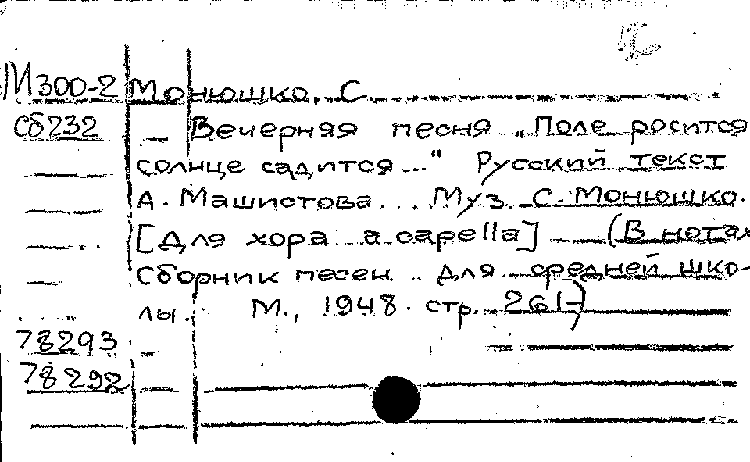 М300-2 Монюшко, С.
Сб232 — Вечерняя песня „Поле росится
солнце садится..." Русский текст
А. Машистова... Муз. С. Монюшко.
[Для хора a capella] — (В нотах
Сборник песен.. для средней шко-
лы. М., 1948. стр. 261)
78293
78292